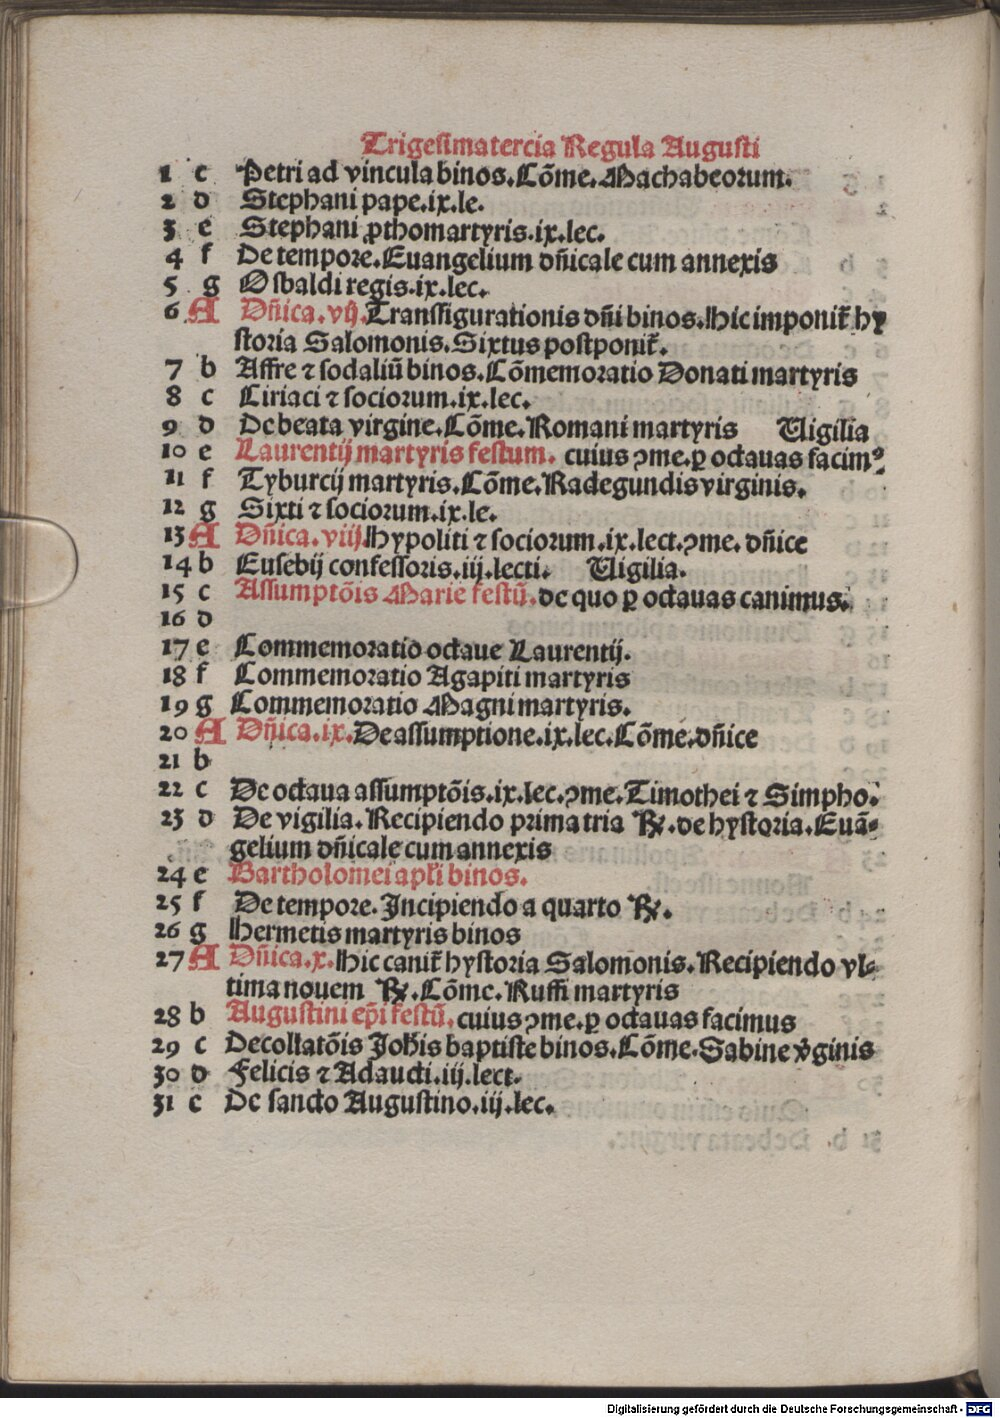 Trigesimatercia Regula Augusti
1 c Petri ad vincula binos. Cõme. Machabeorum.
2 d Stephani pape. ix. le.
3 e Stephani ꝓthomartyris. ix. lec.
4 f De tempore. Euangelium dñicale cum annexis
5 g Osbaldi regis. ix. lec.
6 A Dñica. vij. Transfigurationis dñi binos. Hic imponit᷑ hy
storia Salomonis. Sixtus postponit᷑.
7 b Affre ⁊ sodaliũ binos. Cõmemoratio Donati martyris
8 c Ciriaci ⁊ sociorum. ix. lec.
9 d De beata virgine. Cõme. Romani martyris Uigilia
10 e Laurentij martyris festum. cuius ꝯme. ꝑ octauas facimꝰ.
11 f Tyburcij martyris. Cõme. Radegundis virginis.
12 g Sixti ⁊ sociorum. ix. le.
13 A Dñica. viij. Hypoliti ⁊ sociorum. ix. lect. ꝯme. dñice
14 b Eusebij confessoris. iij. lecti. Uigilia.
15 c Assumptõis Marie festũ. de quo ꝑ octauas canimus.
16 d
17 e Commemoratio octaue Laurentij.
18 f Commemoratio Agapiti martyris
19 g Commemoratio Magni martyris.
20 A Dñica. ix. De assumptione. ix. lec. Cõme. dñice
21 b
22 c De octaua assumptõis. ix. lec. ꝯme. Timothei ⁊ Simpho.
23 d De vigilia. Recipiendo prima tria ℞. de hystoria. Euã-
gelium dñicale cum annexis
24 e Bartholomei apl̃i binos.
25 f De tempore. Incipiendo a quarto ℞.
26 g Hermetis martyris binos
27 A Dñica. x. Hic canit᷑ hystoria Salomonis. Recipiendo vl-
tima nouem ℞. Cõme. Ruffi martyris
28 b Augustini ep̃i festũ. cuius ꝯme. ꝑ octauas facimus
29 c Decollatõis Joh̃is baptiste binos. Cõme. Sabine v̾ginis
30 d Felicis ⁊ Adaucti. iij. lect.
31 e De sancto Augustino. iij. lec.
Digitalisierung gefördert durch die Deutsche Forschungsgemeinschaft - DFG